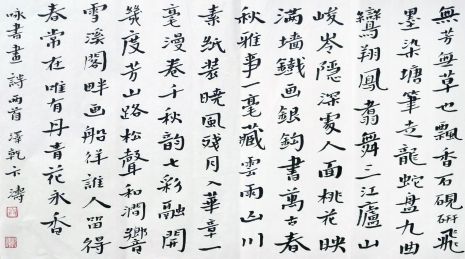 無芳無草也飄香石硯飛
墨染塘筆走龍蛇盤九曲
鸞翔鳳翥舞三江廬山
峻岺隱深處人面桃花映
滿墻鐵画銀鉤書萬古春
秋雅事一毫藏雲雨山川
素紙裝曉風殘月入華章一
毫漫卷千秋韵七彩融開
幾度芳山路松聲和澗響
雪溪閣畔画船徉誰人留得
春常在唯有丹青花永香
咏書畫詩兩首澤乾云濤